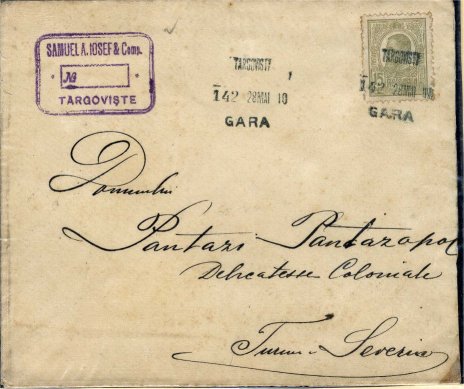 SAMUEL A. IOSEF & Comp.
№
TÂRGOVIŞTE
TARGOVISTE
142 28 MAI 10
GARA
15
TARGOVISTE
142 28 MAI 10
GARA
Domnului
Pantazi Pantazopol
Delicatesse Coloniale
Turnu-Severin